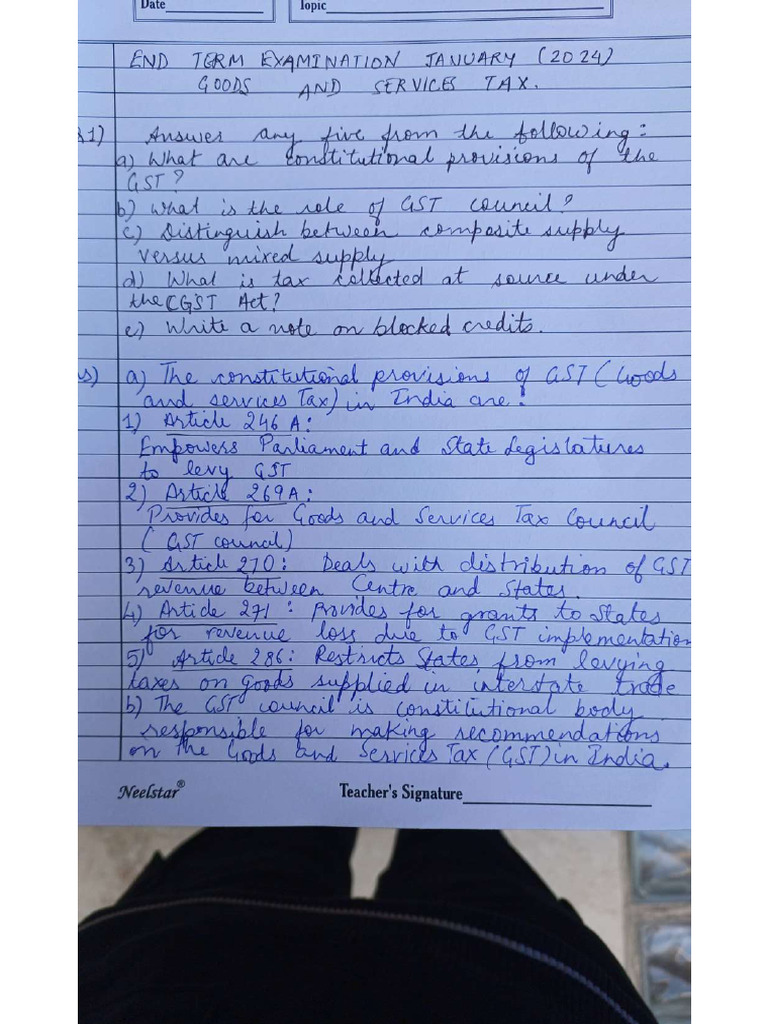 Date
Topic
END TERM EXAMINATION JANUARY (2024)
GOODS AND SERVICES TAX.
Q1) Answer any five from the following:
a) What are constitutional provisions of the
GST?
b) What is the role of GST council?
c) Distinguish between composite supply
versus mixed supply
d) What is tax collected at source under
the CGST Act?
e) Write a note on blocked credits.
s) a) The constitutional provisions of GST (Goods
and services Tax) in India are:
1) Article 246 A:
Empowers Parliament and State Legislatures
to levy GST
2) Article 269A:
Provides for Goods and Services Tax Council
(GST council)
3) Article 270: Deals with distribution of GST
revenue between Centre and States.
4) Article 271: Provides for grants to States
for revenue loss due to GST implementation
5) Article 286: Restricts States from levying
taxes on goods supplied in interstate trade
b) The GST council is constitutional body
responsible for making recommendations
on the Goods and Services Tax (GST) in India.
Neelstar®
Teacher's Signature